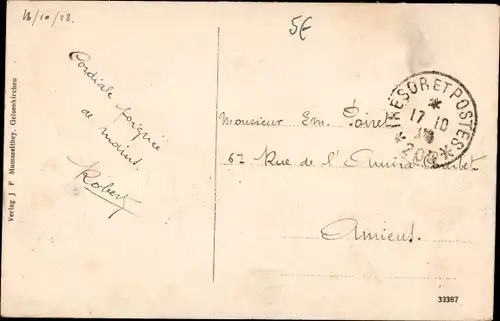 18/10/23.
5€
Cordiale poignée
de mains.
Robert
Verlag J. F. Mummelthey, Gelsenkirchen
TRESOR ET POSTES
17 10
Monsieur Em. Poiret
67 Rue de l'Amiral Courbet
Amiens.
32387